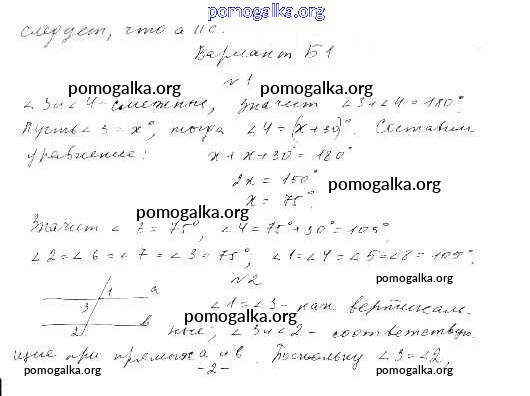 pomogalka.org
следует, что a ∥ c.
Вариант Б1
№1
pomogalka.org pomogalka.org
∠3 и ∠4 - смежные, значит ∠3+∠4=180°.
Пусть ∠3 = x°, тогда ∠4=(x+30)°. Составим
уравнение: x+x+30°=180°
2x = 150°
pomogalka.org
x = 75°.
pomogalka.org
Значит ∠3=75°, ∠4=75°+30°=105°.
∠2=∠6=∠7=∠3=75°, ∠1=∠4=∠5=∠8=105°.
№2
pomogalka.org
1 a
3 ∠1=∠3 - как вертикаль-
pomogalka.org
2 b ные, ∠3 и ∠2 - соответствую-
щие при прямых a и b. Поскольку ∠3=∠2,
pomogalka.org -2- pomogalka.org